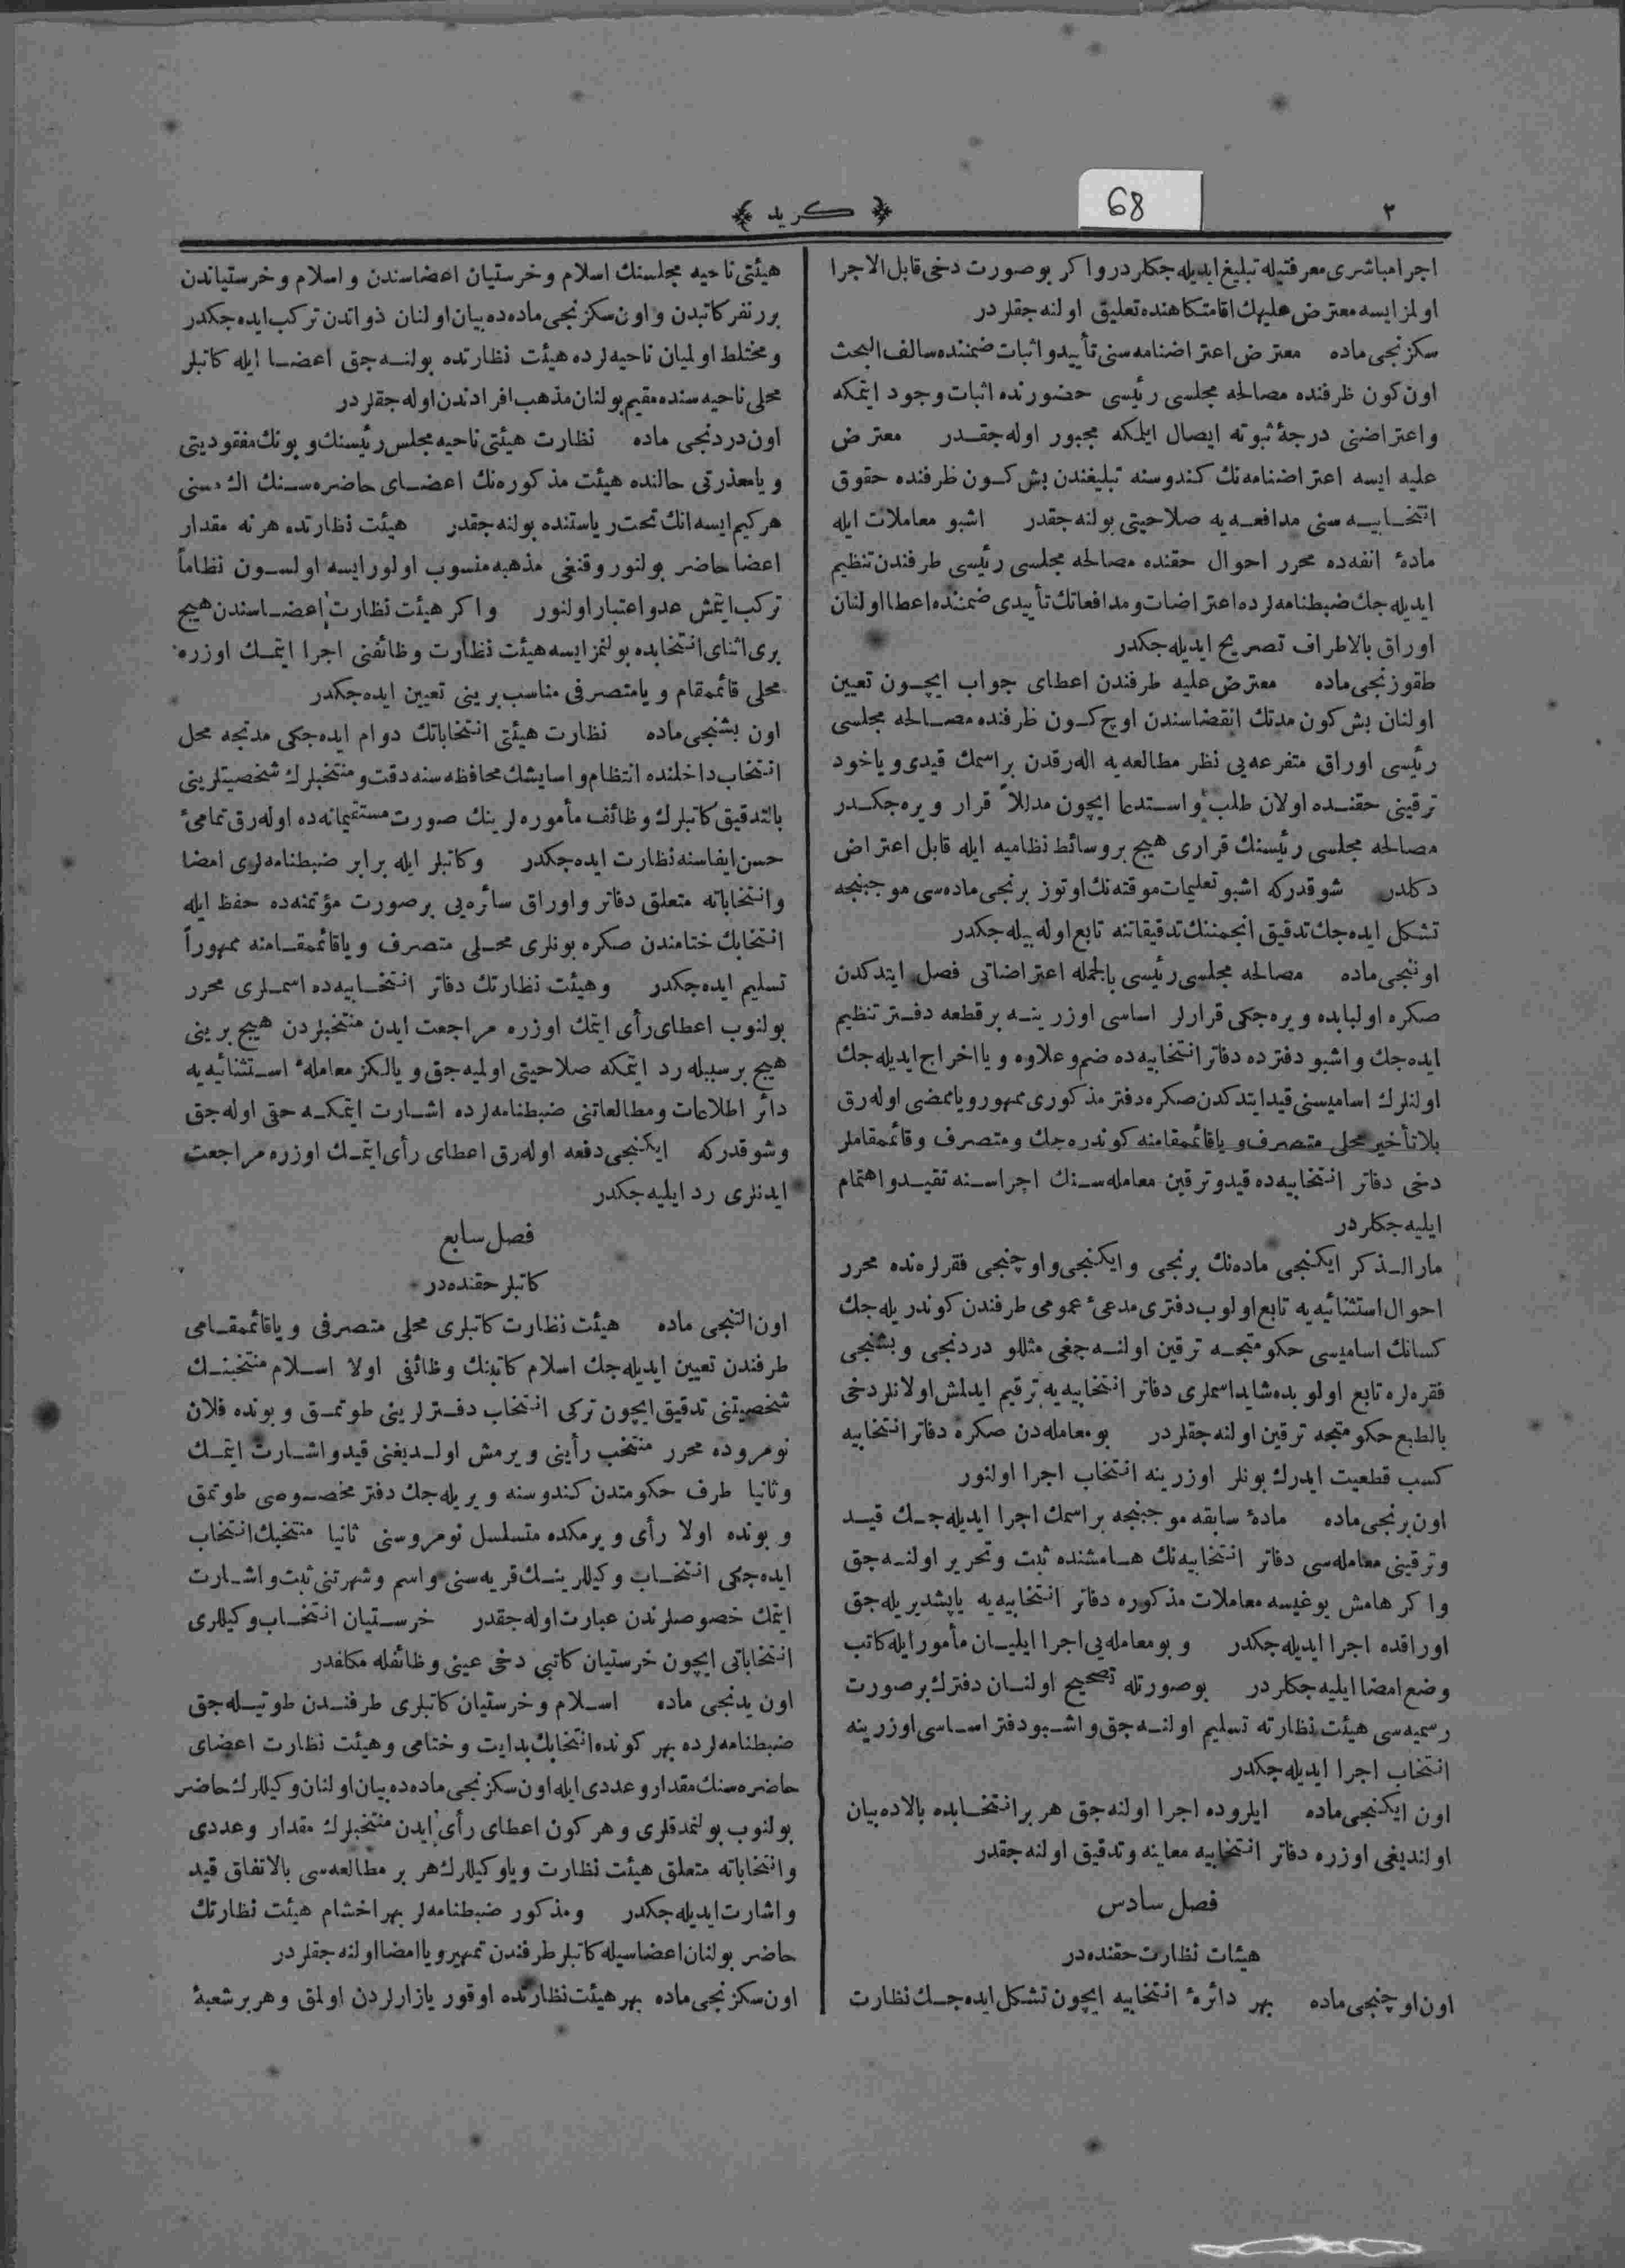 ٢
﴿ كريد ﴾
68
اجرا مباشری معرفتیله تبلیغ ایدیله جکلردر و اکر بو صورت دخی قابل الاجرا
اولمز ایسه معترض علیهك اقامتکاهنده تعلیق اولنه جقلردر
سکزنجی ماده معترض اعتراضنامه سنی تأیید و اثبات ضمننده سالف البحث
اون کون ظرفنده مصالحه مجلسی رئیسی حضورنده اثبات وجود ایتمکه
و اعتراضنی درجهٔ ثبوته ایصال ایلمکه مجبور اوله جقدر معترض
علیه ایسه اعتراضنامه نك کندوسنه تبلیغندن بش کون ظرفنده حقوق
انتخابیه سنی مدافعه یه صلاحیتی بولنه جقدر اشبو معاملات ایله
مادهٔ انفه ده محرر احوال حقنده مصالحه مجلسی رئیسی طرفندن تنظیم
ایدیله جك ضبطنامه لرده اعتراضات و مدافعاتك تأییدی ضمننده اعطا اولنان
اوراق بالاطراف تصریح ایدیله جکدر
طقوزنجی ماده معترض علیه طرفندن اعطای جواب ایچون تعیین
اولنان بش کون مدتك انقضاسندن اوچ کون ظرفنده مصالحه مجلسی
رئیسی اوراق متفرعه یی نظر مطالعه یه اله رقدن براسمك قیدی و یاخود
ترقینی حقنده اولان طلب و استدعا ایچون مدللاً قرار ویره جکدر
مصالحه مجلسی رئیسنك قراری هیچ بر وسائط نظامیه ایله قابل اعتراض
دکلدر شوقدرکه اشبو تعلیمات موقته نك اوتوز برنجی ماده سی موجبنجه
تشکل ایده جك تدقیق انجمننك تدقیقاتنه تابع اوله بیله جکدر
اوننجی ماده مصالحه مجلسی رئیسی بالجمله اعتراضاتی فصل ایتدکدن
صکره اولبابده ویره جکی قرارلر اساسی اوزرینه بر قطعه دفتر تنظیم
ایده جك و اشبو دفترده دفاتر انتخابیه ده ضم و علاوه و یا اخراج ایدیله جك
اولنلرك اسامیسنی قید ایتدکدن صکره دفتر مذکوری ممهور و یا ممضی اوله رق
بلا تأخیر محلی متصرف و یا قائممقامنه کوندره جك و متصرف و قائممقاملر
دخی دفاتر انتخابیه ده قید و ترقین معامله سنك اجراسنه تقید و اهتمام
ایلیه جکلردر
مار الذکر ایکنجی ماده نك برنجی و ایکنجی و اوچنجی فقره لرنده محرر
احوال استثنائیه یه تابع اولوب دفتری مدعیٔ عمومی طرفندن کوندریله جك
کسانك اسامیسی حکومتجه ترقین اولنه جغی مثللو دردنجی و بشنجی
فقره لره تابع اولوبده شاید اسملری دفاتر انتخابیه یه ترقیم ایدلمش اولانلر دخی
بالطبع حکومتجه ترقین اولنه جقلردر بو معامله دن صکره دفاتر انتخابیه
کسب قطعیت ایدرك بونلر اوزرینه انتخاب اجرا اولنور
اون برنجی ماده مادهٔ سابقه موجبنجه براسمك اجرا ایدیله جك قید
و ترقینی معامله سی دفاتر انتخابیه نك هامشنده ثبت و تحریر اولنه جق
و اکر هامش یوغیسه معاملات مذکوره دفاتر انتخابیه یه یاپشدیریله جق
اوراقده اجرا ایدیله جکدر و بو معامله یی اجرا ایلیان مأمور ایله کاتب
وضع امضا ایلیه جکلردر بو صورتله تصحیح اولنان دفترك بر صورت
رسمیه سی هیئت نظارته تسلیم اولنه جق و اشبو دفتر اساسی اوزرینه
انتخاب اجرا ایدیله جکدر
اون ایکنجی ماده ایلروده اجرا اولنه جق هر بر انتخابده بالاده بیان
اولندیغی اوزره دفاتر انتخابیه معاینه و تدقیق اولنه جقدر
فصل سادس
هیئات نظارت حقنده در
اون اوچنجی ماده بهر دائرهٔ انتخابیه ایچون تشکل ایده جك نظارت
هیئتی ناحیه مجلسنك اسلام و خرستیان اعضاسندن و اسلام و خرستیاندن
برر نفر کاتبدن و اون سکزنجی ماده ده بیان اولنان ذواتدن ترکب ایده جکدر
و مختلط اولمیان ناحیه لرده هیئت نظارتده بولنه جق اعضا ایله کاتبلر
محلی ناحیه سنده مقیم بولنان مذهب افرادندن اوله جقلردر
اون دردنجی ماده نظارت هیئتی ناحیه مجلس رئیسنك و بونك مفقودیتی
و یا معذرتی حالنده هیئت مذکوره نك اعضای حاضره سنك اك مسنی
هر کیم ایسه انك تحت ریاستنده بولنه جقدر هیئت نظارتده هر نه مقدار
اعضا حاضر بولنور و قنغی مذهبه منسوب اولور ایسه اولسون نظاماً
ترکب ایتمش عد و اعتبار اولنور و اکر هیئت نظارت اعضاسندن هیچ
بری اثنای انتخابده بولنمز ایسه هیئت نظارت وظائفنی اجرا ایتمك اوزره
محلی قائممقام و یا متصرفی مناسب برینی تعیین ایده جکدر
اون بشنجی ماده نظارت هیئتی انتخاباتك دوام ایده جکی مدتجه محل
انتخاب داخلنده انتظام و اسایشك محافظه سنه دقت و منتخبلرك شخصیتلرینی
بالتدقیق کاتبلرك وظائف مأموره لرینك صورت مستقیمانه ده اوله رق تمامیٔ
حسن ایفاسنه نظارت ایده جکدر و کاتبلر ایله برابر ضبطنامه لری امضا
و انتخاباته متعلق دفاتر و اوراق سائره یی بر صورت مؤتمنه ده حفظ ایله
انتخابك ختامندن صکره بونلری محلی متصرف و یا قائممقامنه ممهوراً
تسلیم ایده جکدر و هیئت نظارتك دفاتر انتخابیه ده اسملری محرر
بولنوب اعطای رأی ایتمك اوزره مراجعت ایدن منتخبلردن هیچ برینی
هیچ بر سببله رد ایتمکه صلاحیتی اولمیه جق و یالکز معاملهٔ استثنائیه یه
دائر اطلاعات و مطالعاتنی ضبطنامه لرده اشارت ایتمکه حقی اوله جق
و شوقدرکه ایکنجی دفعه اوله رق اعطای رأی ایتمك اوزره مراجعت
ایدنلری رد ایلیه جکدر
فصل سابع
کاتبلر حقنده در
اون التنجی ماده هیئت نظارت کاتبلری محلی متصرفی و یا قائممقامی
طرفندن تعیین ایدیله جك اسلام کاتبنك وظائفی اولا اسلام منتخبنك
شخصیتنی تدقیق ایچون ترکی انتخاب دفترلرینی طوتمق و بونده فلان
نومروده محرر منتخب رأینی ویرمش اولدیغنی قید و اشارت ایتمك
و ثانیا طرف حکومتدن کندوسنه ویریله جك دفتر مخصوصی طوتمق
و بونده اولا رأی ویرمکده متسلسل نومروسنی ثانیا منتخبك انتخاب
ایده جکی انتخاب وکیللرینك قریه سنی و اسم و شهرتنی ثبت و اشارت
ایتمك خصوصلرندن عبارت اوله جقدر خرستیان انتخاب وکیللری
انتخاباتی ایچون خرستیان کاتبی دخی عینی وظائفله مکلفدر
اون یدنجی ماده اسلام و خرستیان کاتبلری طرفندن طوتیله جق
ضبطنامه لرده بهر کونده انتخابك بدایت و ختامی و هیئت نظارت اعضای
حاضره سنك مقدار و عددی ایله اون سکزنجی ماده ده بیان اولنان وکیللرك حاضر
بولنوب بولنمدقلری و هر کون اعطای رأی ایدن منتخبلرك مقدار و عددی
و انتخاباته متعلق هیئت نظارت و یا وکیللرك هر بر مطالعه سی بالاتفاق قید
و اشارت ایدیله جکدر و مذکور ضبطنامه لر بهر اخشام هیئت نظارتك
حاضر بولنان اعضاسیله کاتبلر طرفندن تمهیر و یا امضا اولنه جقلردر
اون سکزنجی ماده بهر هیئت نظارتده اوقور یازارلردن اولمق و هر بر شعبهٔ